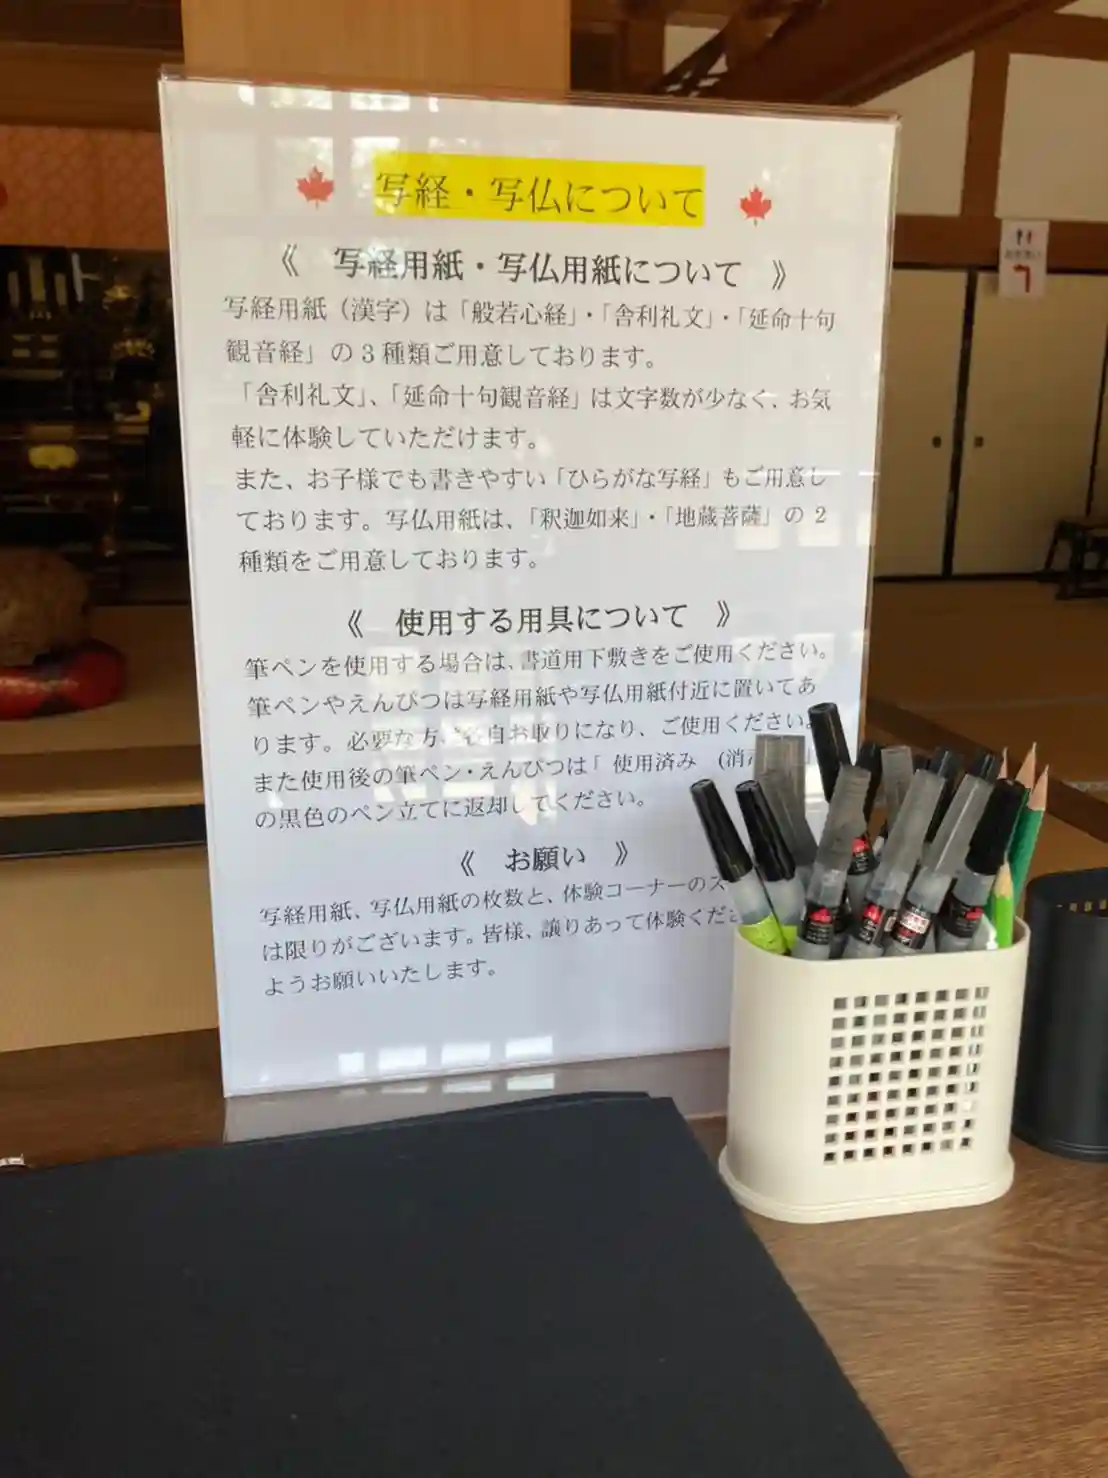 写経・写仏について
《 写経用紙・写仏用紙について 》
写経用紙（漢字）は「般若心経」・「舎利礼文」・「延命十句
観音経」の３種類ご用意しております。
「舎利礼文」、「延命十句観音経」は文字数が少なく、お気
軽に体験していただけます。
また、お子様でも書きやすい「ひらがな写経」もご用意し
ております。写仏用紙は、「釈迦如来」・「地蔵菩薩」の２
種類をご用意しております。
《 使用する用具について 》
筆ペンを使用する場合は、書道用下敷きをご使用ください。
筆ペンやえんぴつは写経用紙や写仏用紙付近に置いてあ
ります。必要な方、各自お取りになり、ご使用ください。
また使用後の筆ペン・えんぴつは「 使用済み (消
の黒色のペン立てに返却してください。
《 お願い 》
写経用紙、写仏用紙の枚数と、体験コーナーのス
は限りがございます。皆様、譲りあって体験くださ
ようお願いいたします。